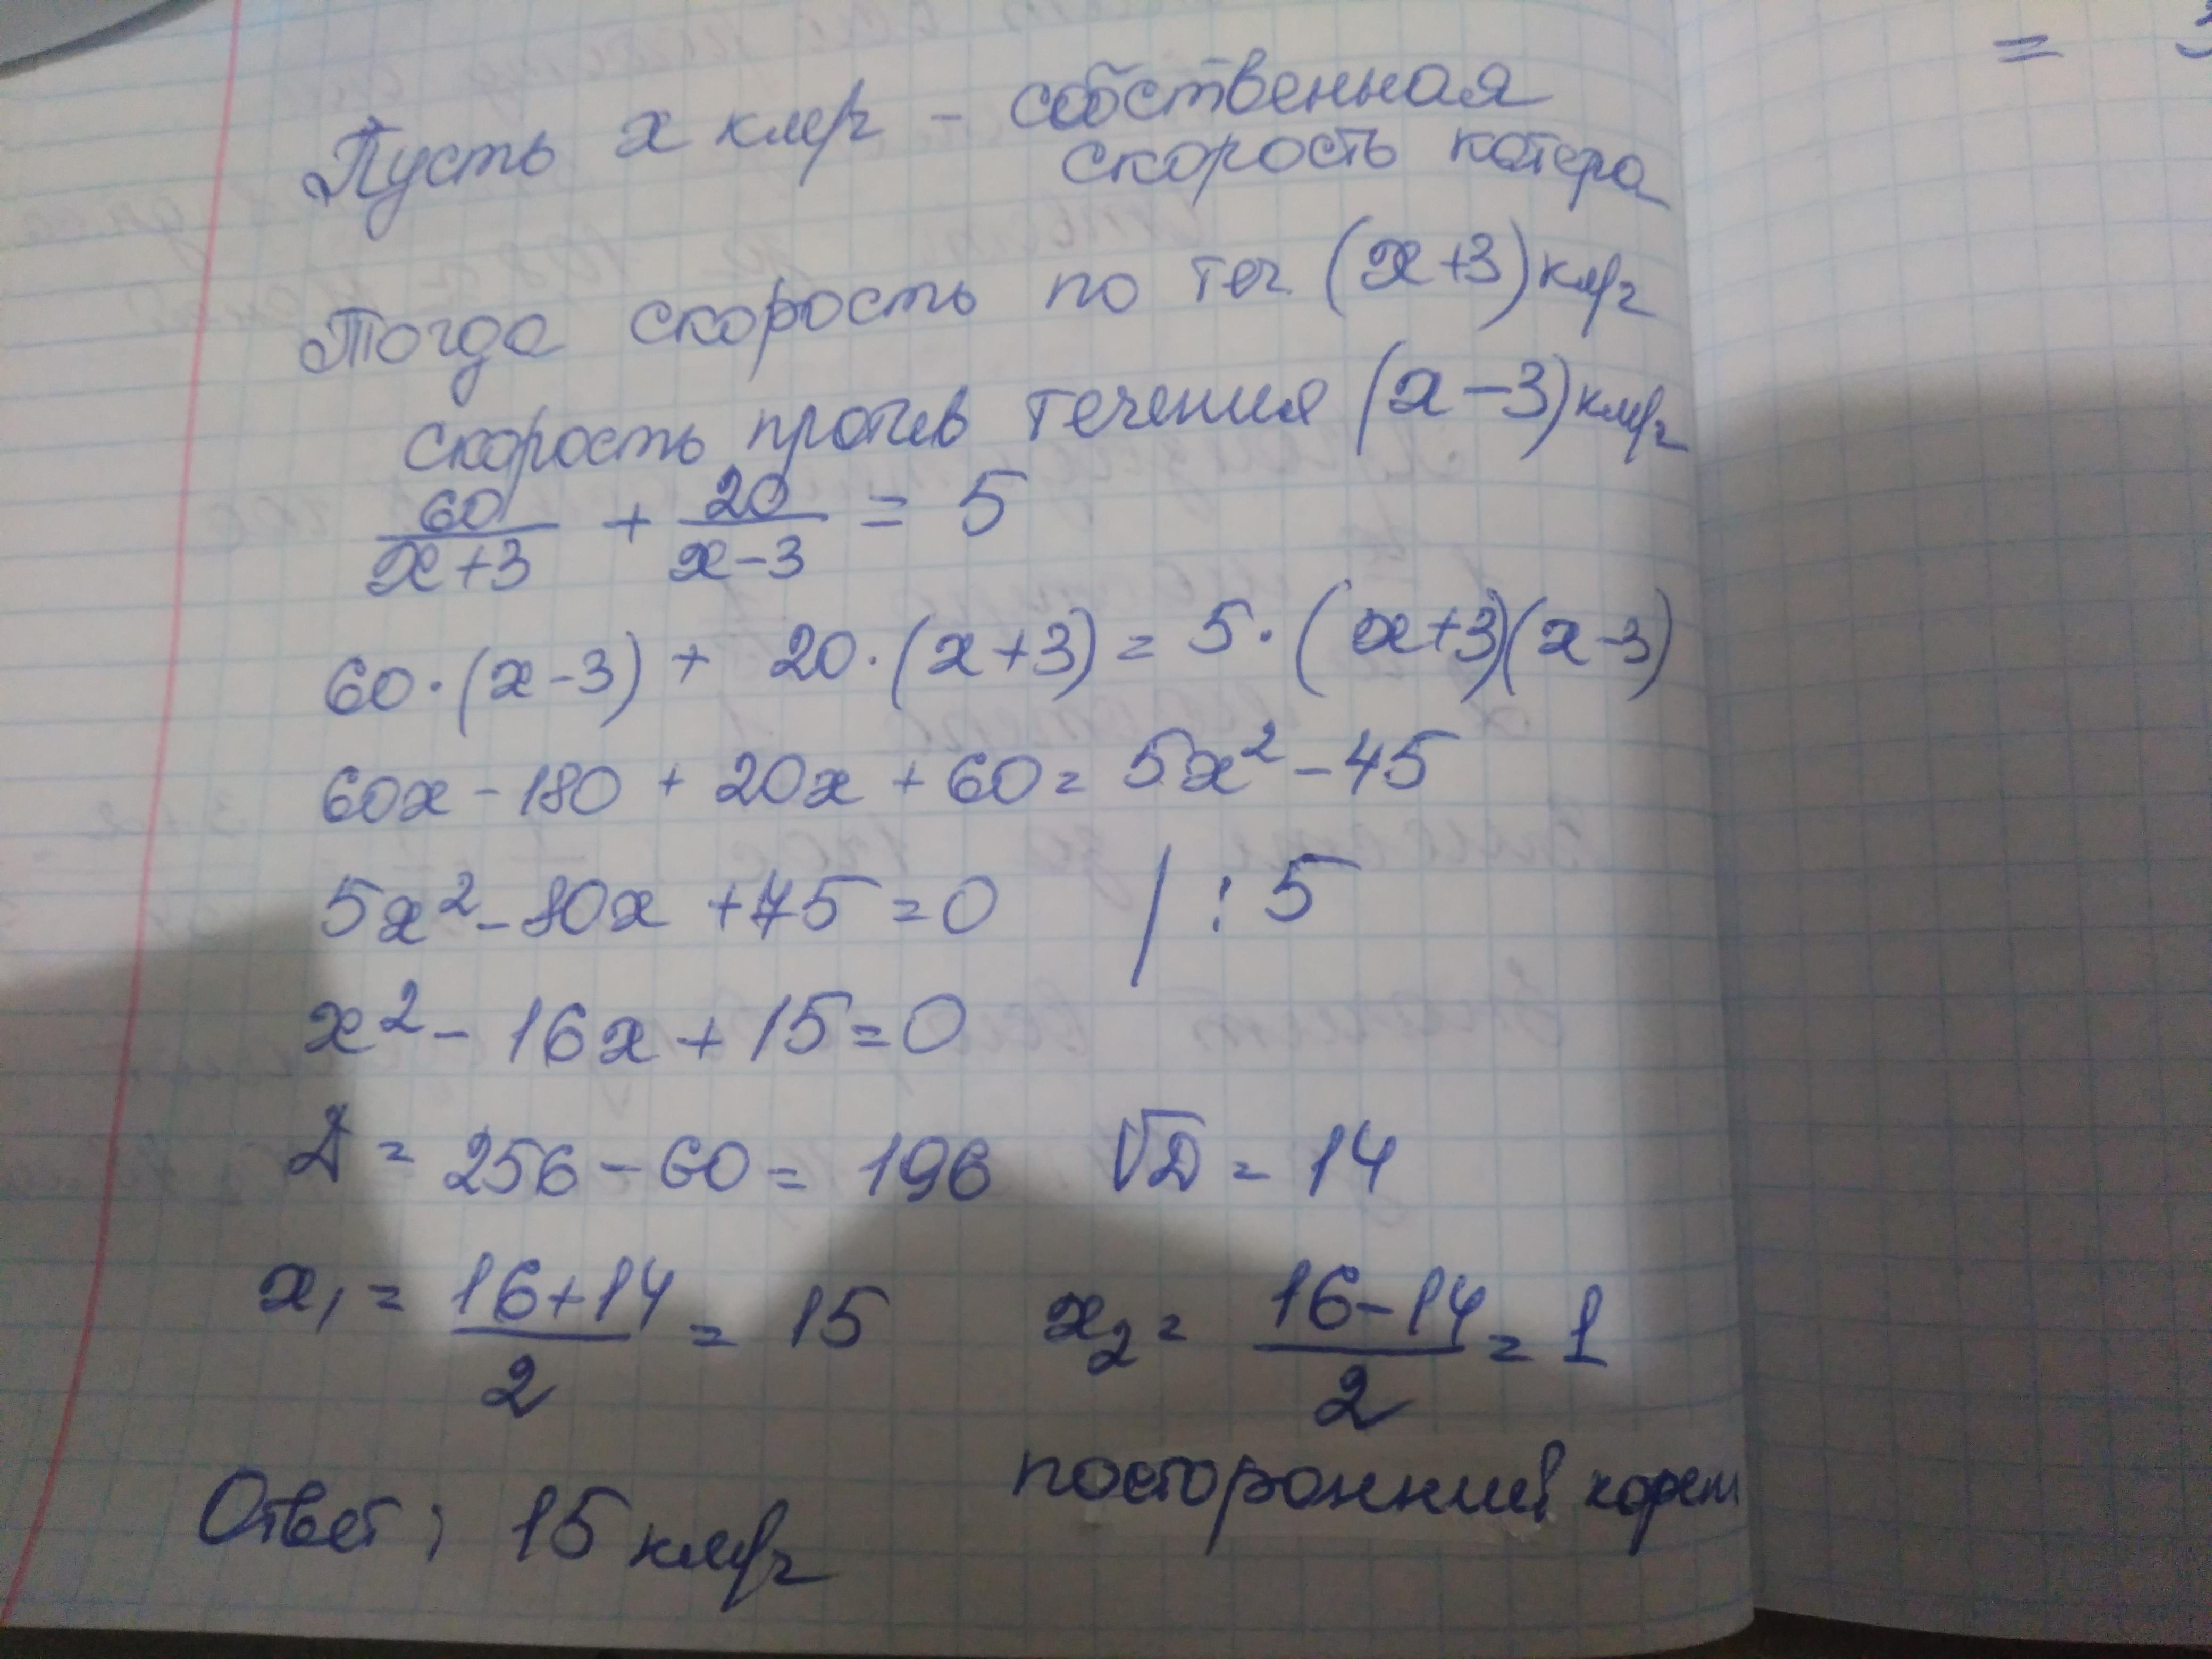 Пусть x км/ч - собственная
скорость катера
Тогда скорость по теч (x+3) км/ч
скорость против течения (x-3) км/ч
60/(x+3) + 20/(x-3) = 5
60·(x-3) + 20·(x+3) = 5·(x+3)(x-3)
60x - 180 + 20x + 60 = 5x² - 45
5x² - 80x + 75 = 0 / : 5
x² - 16x + 15 = 0
D = 256 - 60 = 196 √D = 14
x₁ = (16+14)/2 = 15 x₂ = (16-14)/2 = 1
посторонний корень
Ответ: 15 км/ч
=